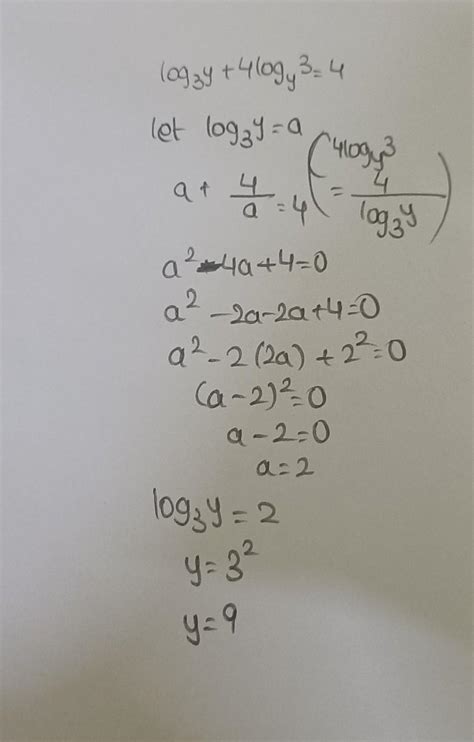 log₃y + 4log_y 3 = 4
let log₃y = a
a + 4/a = 4 (4log_y 3 = 4/log₃y)
a² - 4a + 4 = 0
a² - 2a - 2a + 4 = 0
a² - 2(2a) + 2² = 0
(a - 2)² = 0
a - 2 = 0
a = 2
log₃y = 2
y = 3²
y = 9